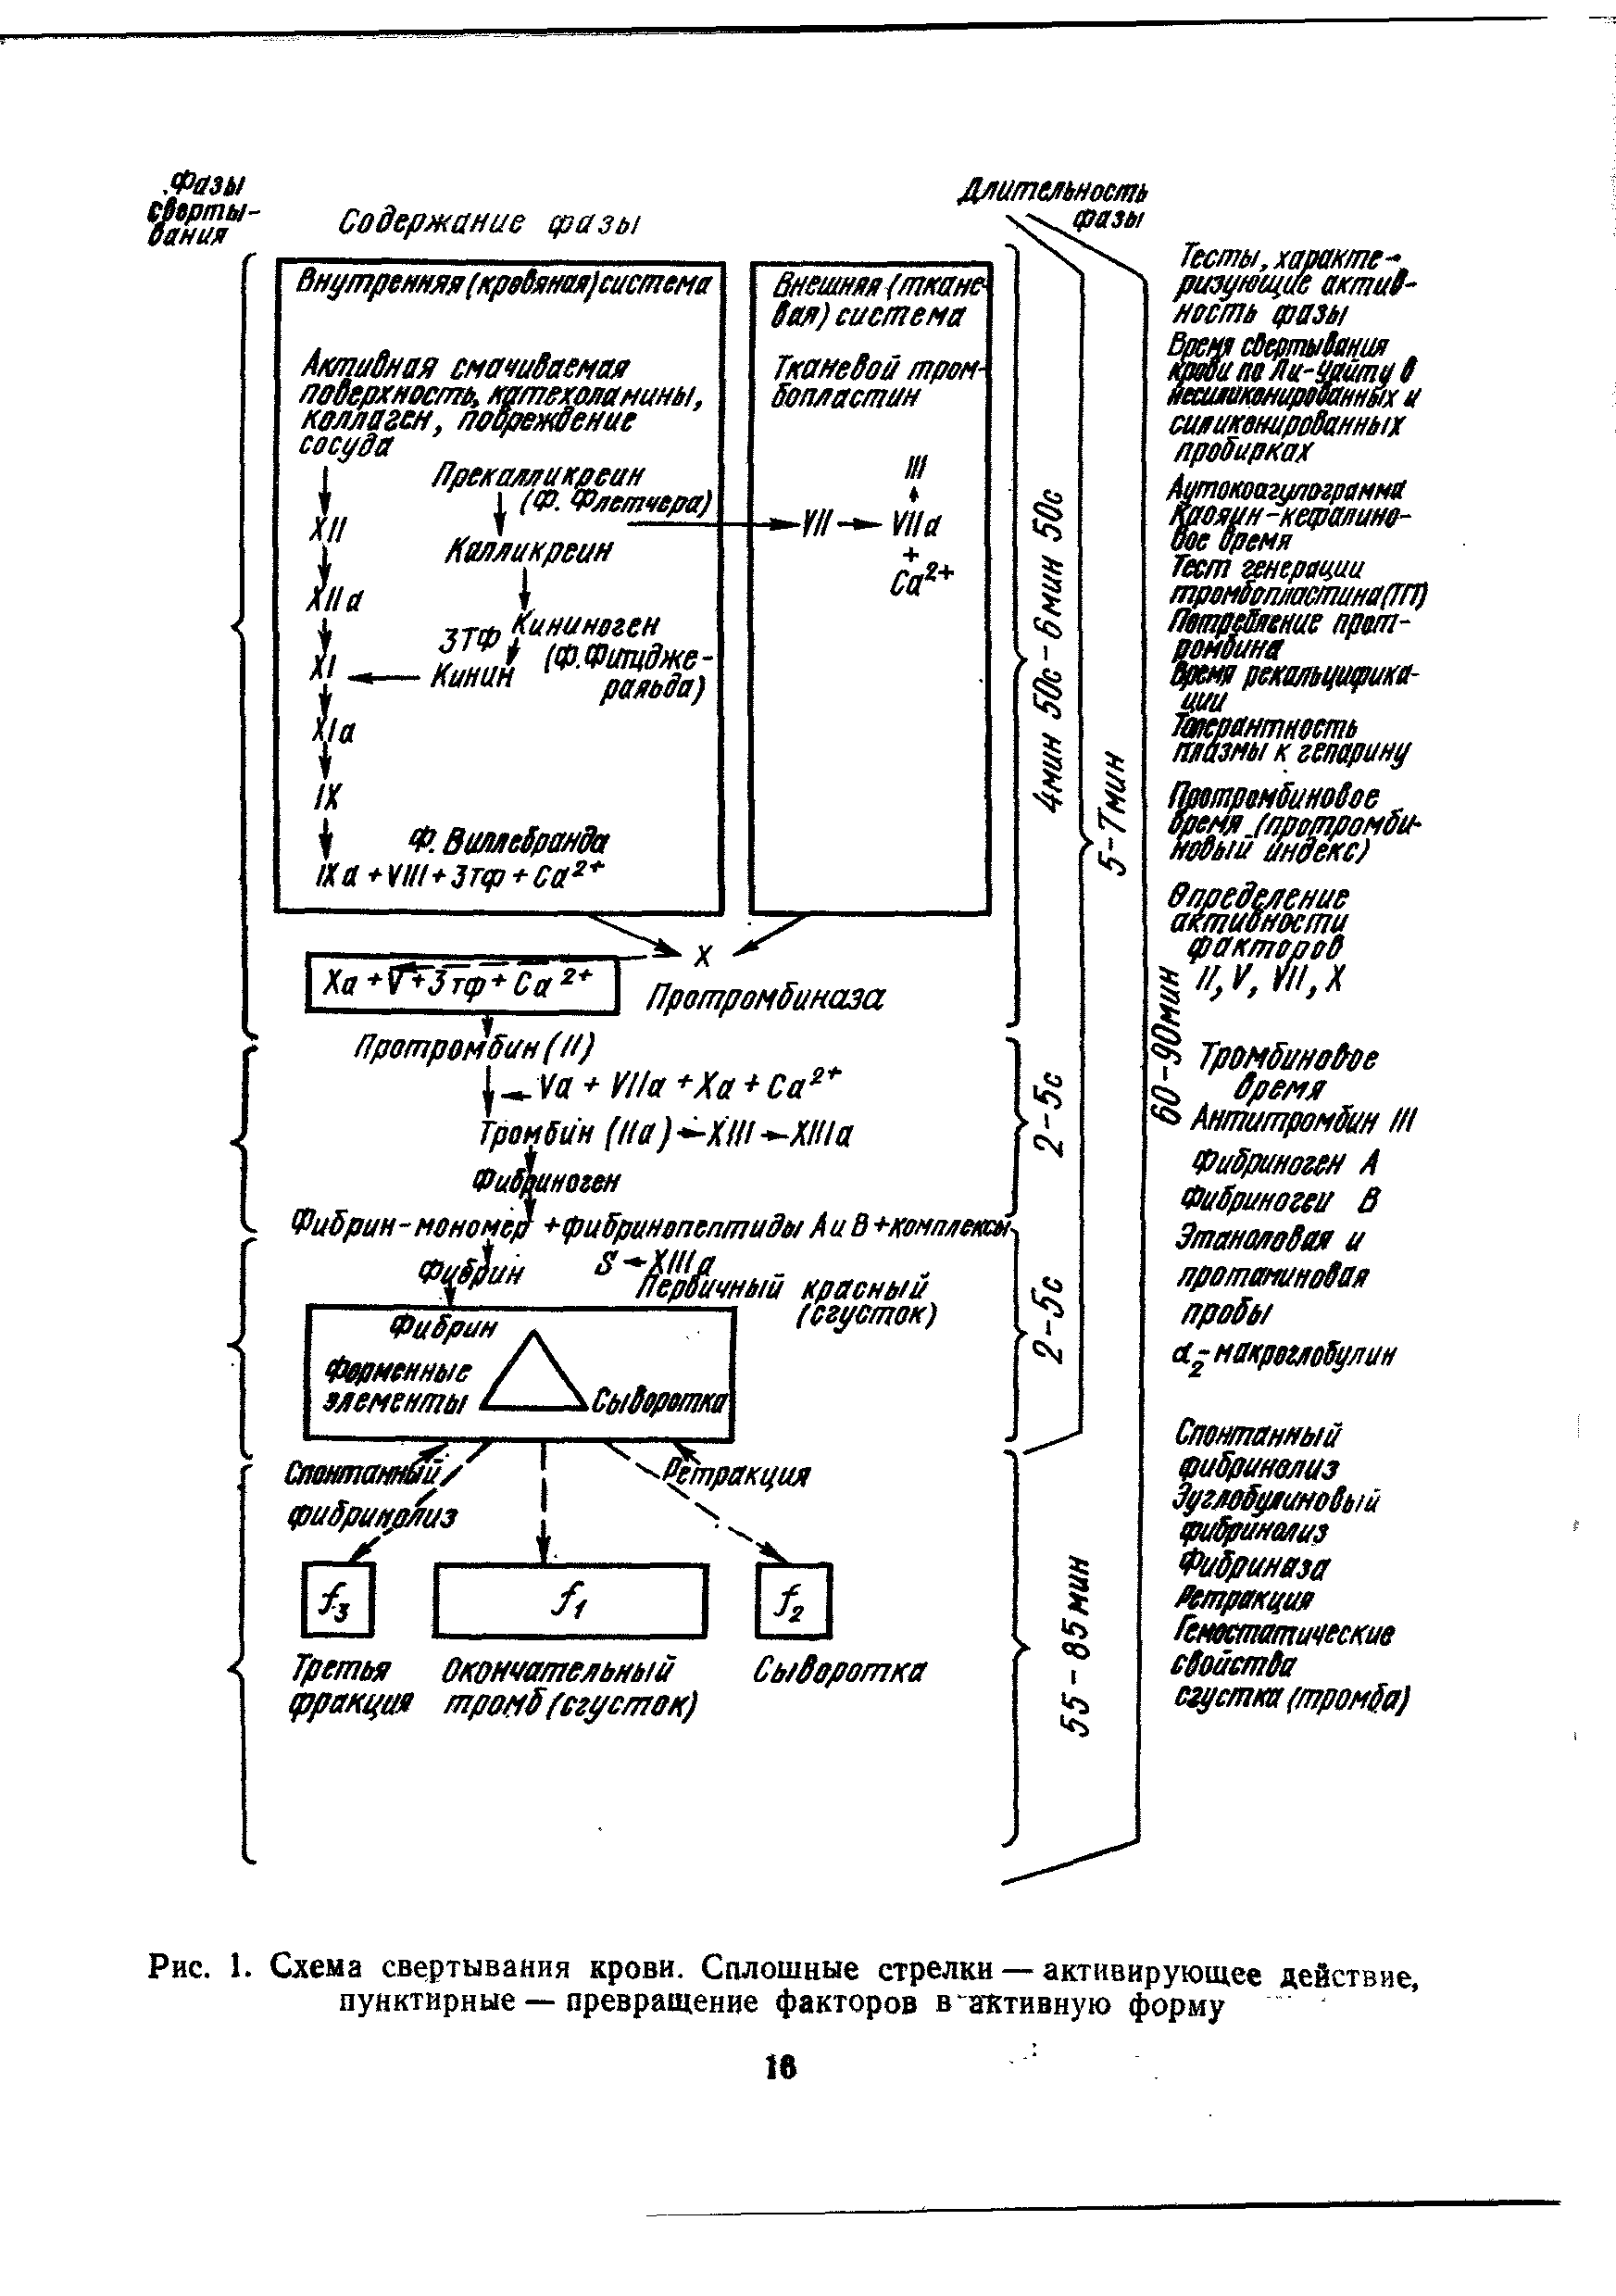 Фазы
сверты-
вания
Содержание фазы
Длительность
фазы
Внутренняя (кровяная) система
Активная смачиваемая
поверхность, катехоламины,
коллаген, повреждение
сосуда
Прекалликреин
(Ф. Флетчера)
XII
Калликреин
XIIa
Кининоген
3ТФ
(Ф. Фитздже-
ральда)
XI
Кинин
XIa
IX
Ф. Виллебранда
IXa + VIII + 3тф + Ca2+
Внешняя (ткане-
вая) система
Тканевой тром-
бопластин
III
VII
VIIa
+
Ca2+
X
Xa + V + 3тф + Ca2+
Протромбиназа
Протромбин (II)
Va + VIIa + Xa + Ca2+
Тромбин (IIa) XIII XIIIa
Фибриноген
Фибрин-мономер + фибринопептиды А и В + комплексы
Фибрин
S XIIIa
Первичный красный
(сгусток)
Фибрин
Форменные
элементы
Сыворотка
Спонтанный
фибринолиз
Ретракция
f3
f1
f2
Третья
фракция
Окончательный
тромб (сгусток)
Сыворотка
4мин 50с - 6мин 50с
2-5с
2-5с
55-85мин
5-7мин
60-90мин
Тесты, характе-
ризующие актив-
ность фазы
Время свертывания
крови по Ли-Уайту в
несиликонированных и
силиконированных
пробирках
Аутокоагулограмма
Каолин-кефалино-
вое время
Тест генерации
тромбопластина (ТГТ)
Потребление прот-
ромбина
Время рекальцифика-
ции
Толерантность
плазмы к гепарину
Протромбиновое
время (протромби-
новый индекс)
Определение
активности
факторов
II, V, VII, X
Тромбиновое
время
Антитромбин III
Фибриноген А
Фибриноген В
Этаноловая и
протаминовая
пробы
α2-макроглобулин
Спонтанный
фибринолиз
Эуглобулиновый
фибринолиз
Фибриназа
Ретракция
Гемостатические
свойства
сгустка (тромба)
Рис. 1. Схема свертывания крови. Сплошные стрелки — активирующее действие,
пунктирные — превращение факторов в активную форму
16